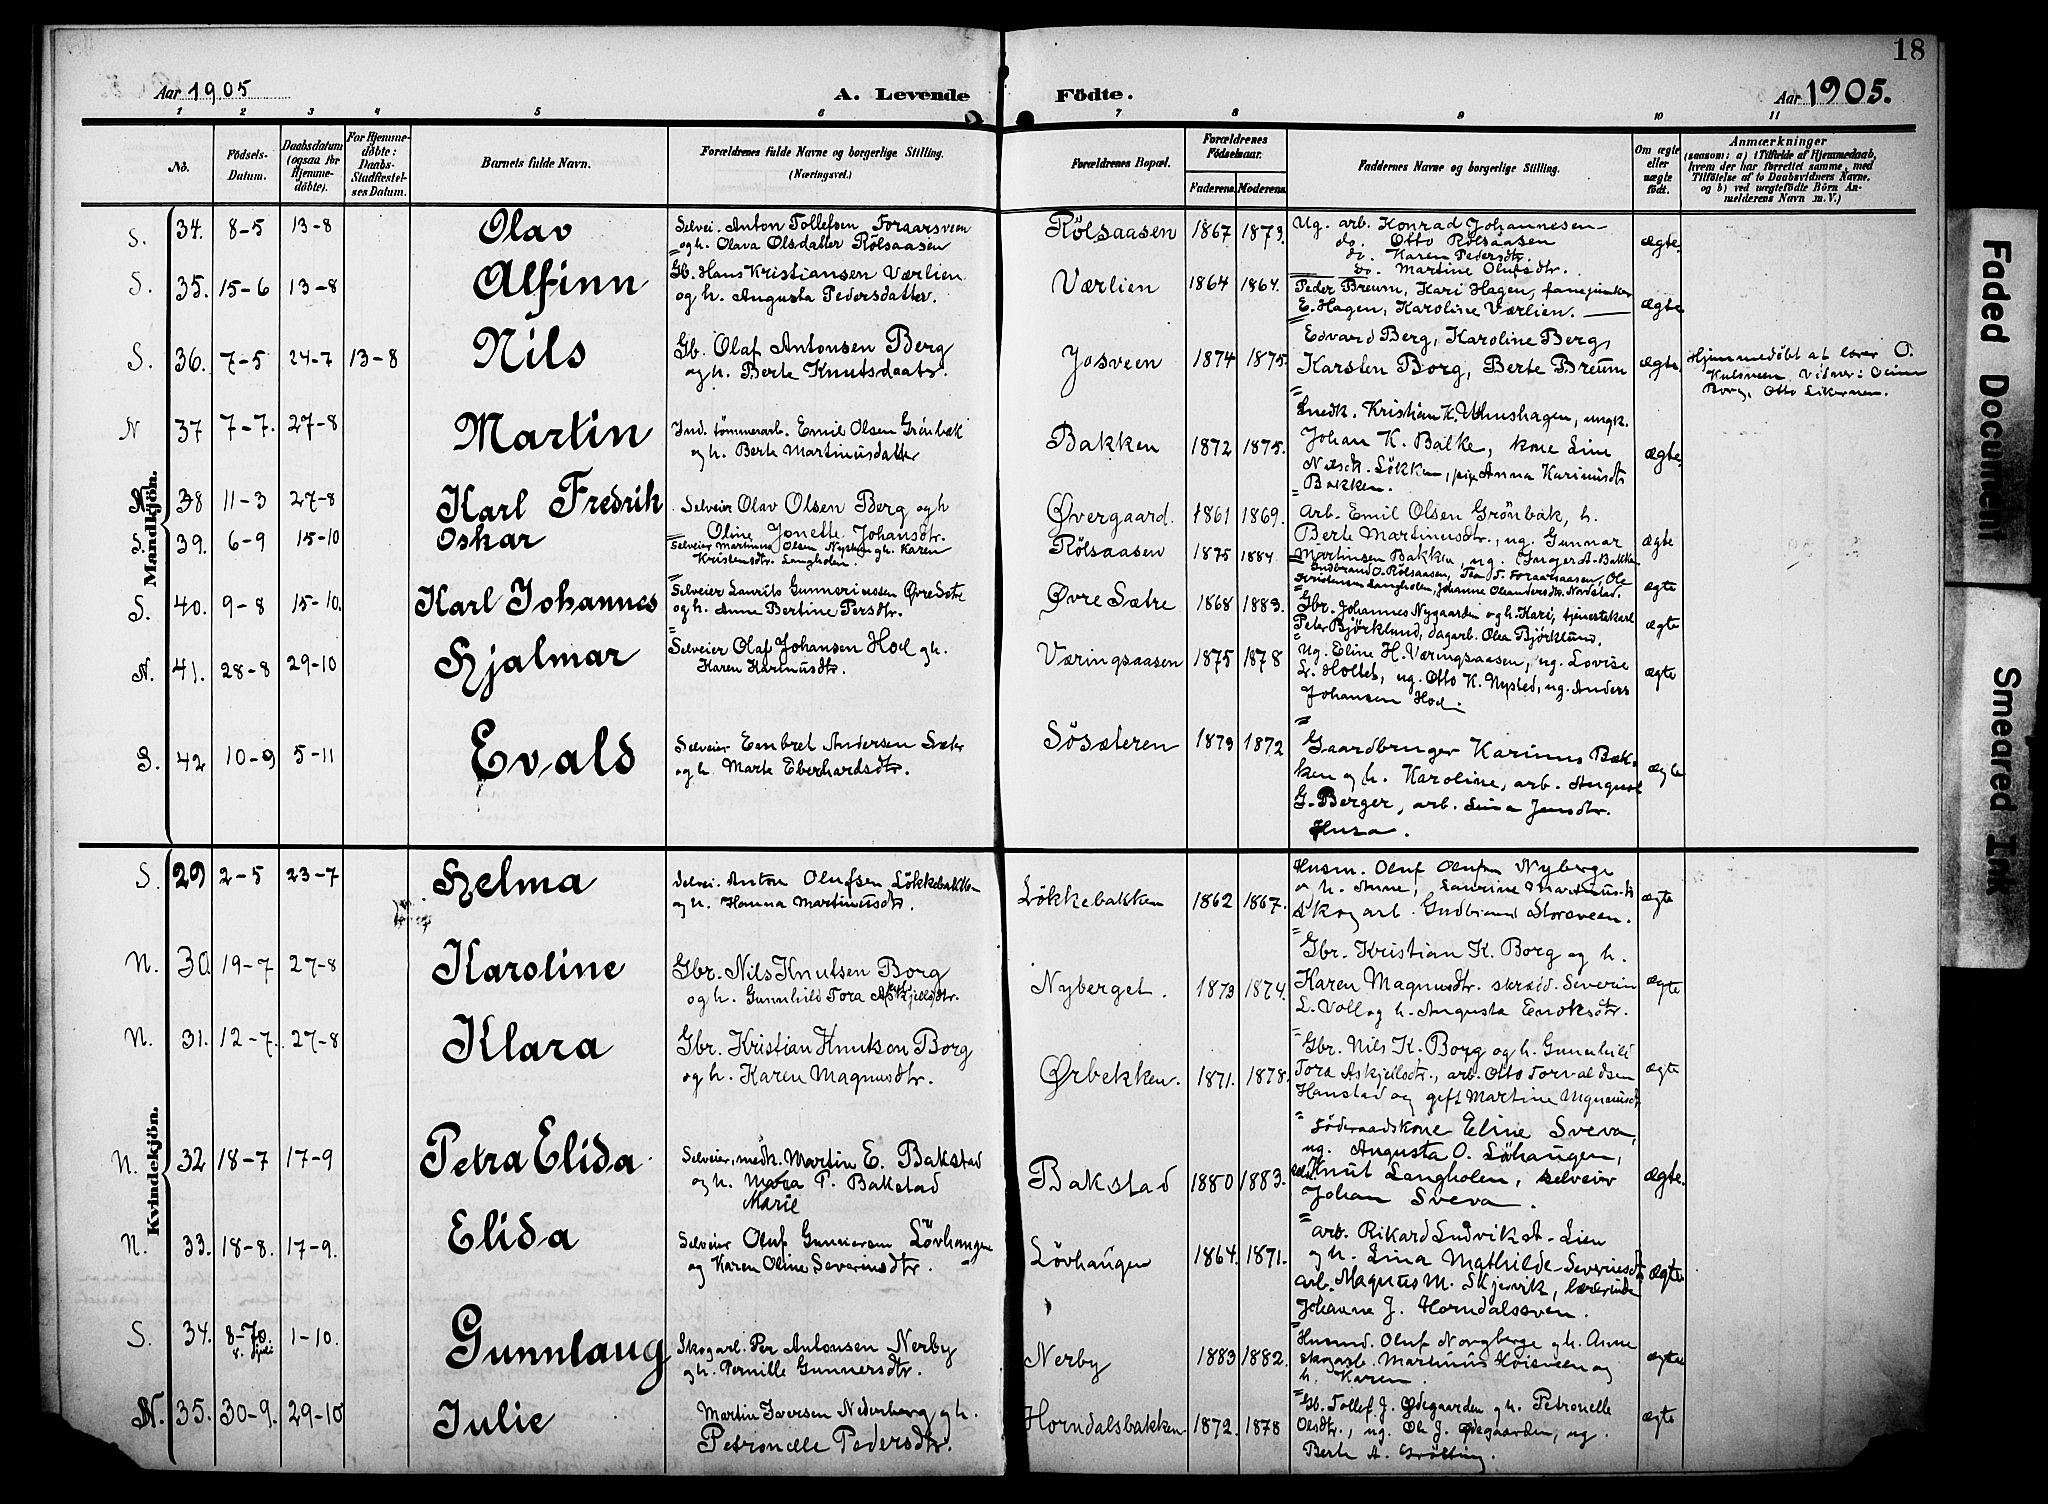 18
Aar 1905
A. Levende Födte.
Aar 1905.
1 2 3 4 5 6 7 8 9 10 11
No.
Födsels-Datum.
Daabsdatum (ogsaa for Hjemmedöbte).
For Hjemmedöbte: Daabs-Stadfæstelses Datum.
Barnets fulde Navn.
Forældrenes fulde Navne og borgerlige Stilling.
(Næringsvei.)
Forældrenes Bopæl.
Forældrenes Födselsaar.
Faderens. Moderens.
Faddernes Navne og borgerlige Stilling.
Om ægte eller uægte födt.
Anmærkninger
(saasom: a) i Tilfælde af Hjemmedaab, hvem der har forrettet samme, med Tilföielse af to Daabsvidners Navne. og b) ved uægtefödte Börn Anmelderens Navn m. V.)
Mandkjön.
S. 34. 8-5 13-8 Olav
Selvei. Anton Tollefsen Foraarsveen
og h. Olava Olsdatter Rölsaasen
Rölsaasen 1867 1873.
Ug. arb. Konrad Johannesen
do. Otto Rölsaasen
do. Karen Pedersdtr.
do. Martine Olufsdtr.
ægte
S. 35. 15-6 13-8 Alfinn
Gb. Hans Kristiansen Værlien
og h. Augusta Pedersdatter.
Værlien 1864 1864.
Peder Breum, Kari Hagen, fanejunker
E. Hagen, Karoline Værlien.
ægte
S. 36. 7-5 24-7 13-8 Nils
Gb. Olaf Antonsen Berg
og h. Berte Knutsdaatr.
Josveen 1874 1875.
Edvard Berg, Karoline Berg,
Karsten Borg, Berte Breum
ægte
Hjemmedöbt af lærer O.
Kulsveen. Vidner:
Borg, Otto
N 37 7-7. 27-8 Martin
Ind. tömmerarb. Emil Olsen Grönbæk
og h. Berte Martinusdatter
Bakken 1872 1875.
Snedk. Kristian K. Ulmshagen, ungk.
Johan K. Balke, kone Line
Nilsdt. Lökken, pige Anna Karinusdt
Bakken.
ægte.
N. 38 11-3 27-8 Karl Fredrik
Selveier Olav Olsen Berg og h
Oline Jonette Johansdtr.
Övergaard. 1861 1869.
Arb. Emil Olsen Grönbak, h.
Berte Martinusdtr., ug. Gunnar
Martinsen Bakken, ug. Inger A. Bakken
ægte
S. 39. 6-9 15-10 Oskar
Selveier Martinus Olsen Nysten og h. Karen
Kristensdtr. Langholen.
Rölsaasen 1875 1884.
Gudbrand O. Rölsaasen, Tea T. Foraarsaasen, Ole
Kristensen Langholen, Johanne Oleandersdtr. Nordstad.
ægte
S. 40. 9-8 15-10. Karl Johannes
Selveier Laurits Gunneriussen Övre Sætre
og h. Anne Bertine Persdtr.
Övre Sætre 1868 1883.
Gbr. Johannes Nygaarden og h. Kari, tjenestekarl
Peter Björklund, dagarb. Olea Björklund.
ægte
N. 41. 28-8 29-10 Hjalmar
Selveier Olaf Johansen Hoel og h.
Karen Karinusdtr.
Væringsaasen 1875 1878
Ug. Eline H. Væringsaasen, ug. Lovise
L. Holtet, ug. Otto K. Nysted, ug. Anders
Johansen Hoel.
ægte
S. 42 10-9 5-11 Evald
Selveier Embret Andersen Sætr
og h. Marte Eberhardsdtr.
Söseteren 1879 1872
Gaardbruger Karinus Bakken
og h. Karoline, arb. August
G. Berger, arb. Lina Jensdtr.
Husa.
ægte
Kvindekjön.
S. 29 2-5 23-7 Helma
Selvei. Anton Olufsen Lökkebakken
og h. Hanna Martinusdtr.
Lökkebakken 1862 1867.
Husm. Oluf Olufsen Nyberge
og h. Anne, Laurine
Skogarb. Gudbrand Storsveen.
ægte
N. 30 19-7 27-8 Karoline
Gbr. Nils Knutsen Borg
og h. Gunnhild Tora Askjellsdtr.
Nyberget. 1873 1874.
Gbr. Kristian K. Borg og h.
Karen Magnusdtr. skræd. Severin
L. Voll og h. Augusta Enoksdtr.
ægte
N. 31. 12-7. 27-8 Klara
Gbr. Kristian Knutsen Borg
og h. Karen Magnusdtr.
Ørbekken. 1871. 1878.
Gbr. Nils K. Borg og h. Gunnhild
Tora Askjellsdtr., arb. Otto Torvaldsen
Hanstad og gift Martine Magnusdt
ægte
N. 32 18-7 17-9 Petra Elida
Selveier, medk. Martin E. Bakstad
og h. Maria P. Bakstad
Marie
Bakstad 1880 1883.
Föderaadskone Eline Sveva,
ug. Augusta O. Lövhaugen,
Knut Langholen, selveier
Johan Sveva.
ægte.
N. 33. 18-8. 17-9. Elida
Selveier Oluf Gunnersen Lövhaugen
og Karen Oline Severinsdtr.
Lövhaugen 1864. 1871.
arb. Rikard Ludvik A. Lien
og h. Lina Mathilde Severinsdt
arb. Magnus M. Skjervik, lærerinde
Johanne J. Horndalssven.
ægte
S. 34. 8-7. 1-10. Gunnlaug
8. juli
Skogarb. Per Antonsen Nerby
og h. Pernille Gunnersdtr.
Nerby 1883 1882.
Husmd. Oluf Norgberge og h. Anne
skogarb. Martinus Moisveen og
h. Karen.
ægte
N. 35. 30-9. 29-10 Julie
Martin Iversen Nederberg og h.
Petronelle Pedersdtr.
Horndalsbakken 1872. 1878
Gb. Tollef J. Ødegaarden og h. Petronelle
Olsdtr., ug. Ole J. Ødegaarden, ug.
Berte A. Grötting.
ægte
Faded Document
Smeared Ink